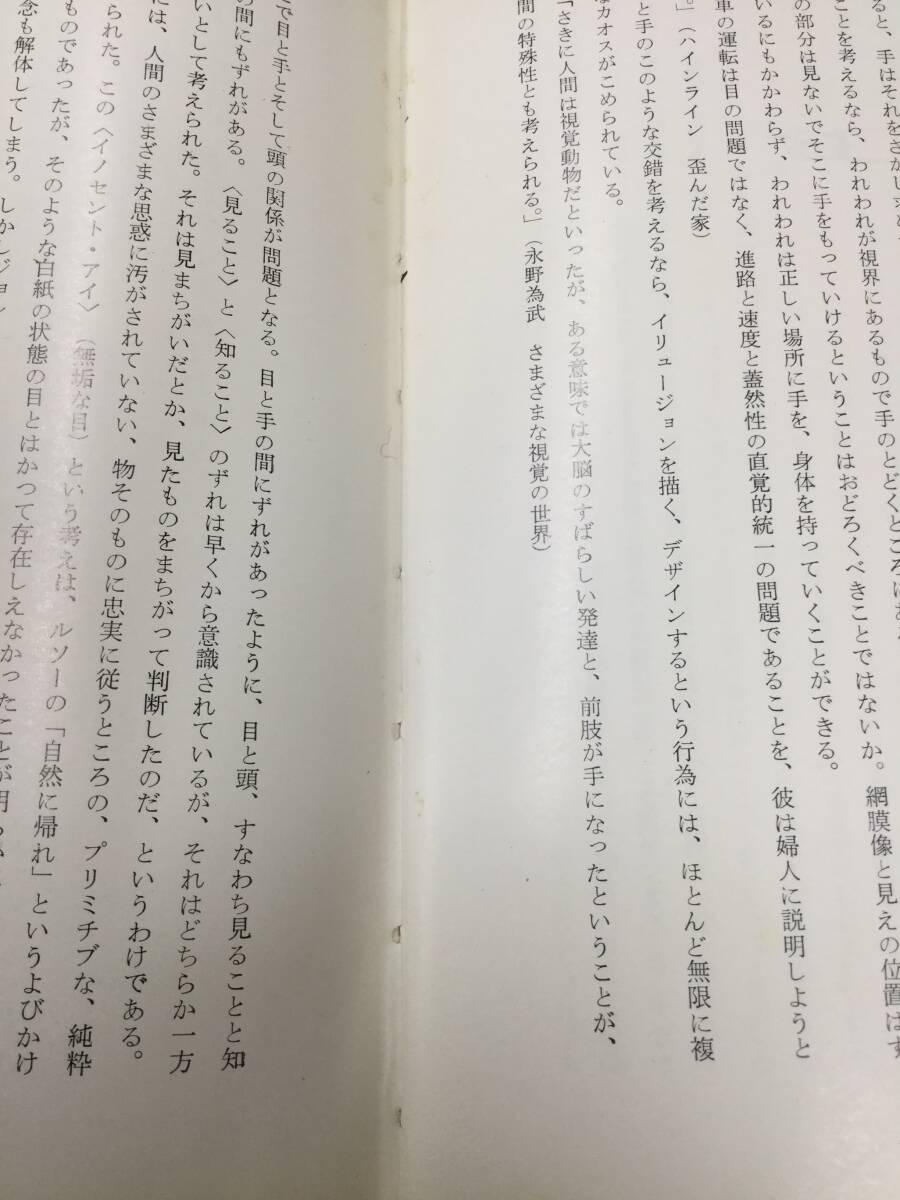 ると、手はそれをさがし求
ことを考えるなら、われわれが視界にあるもので手のとどくところに
の部分は見ないでそこに手をもっていけるということはおどろくべきことではないか。網膜像と見えの位置はず
いるにもかかわらず、われわれは正しい場所に手を、身体を持っていくことができる。
車の運転は目の問題ではなく、進路と速度と蓋然性の直覚的統一の問題であることを、彼は婦人に説明しようと
。」（ハインライン　歪んだ家）
と手のこのような交錯を考えるなら、イリュージョンを描く、デザインするという行為には、ほとんど無限に複
なカオスがこめられている。
「さきに人間は視覚動物だといったが、ある意味では大脳のすばらしい発達と、前肢が手になったということが、
間の特殊性とも考えられる。」（永野為武　さまざまな視覚の世界）
で目と手とそして頭の関係が問題となる。目と手の間にずれがあったように、目と頭、すなわち見ることと知
の間にもずれがある。〈見ること〉と〈知ること〉のずれは早くから意識されているが、それはどちらか一方
いとして考えられた。それは見まちがいだとか、見たものをまちがって判断したのだ、というわけである。
には、人間のさまざまな思惑に汚がされていない、物そのものに忠実に従うところの、プリミチブな、純粋
られた。この〈イノセント・アイ〉（無垢な目）という考えは、ルソーの「自然に帰れ」というよびかけ
ものであったが、そのような白紙の状態の目とはかつて存在しえなかったことが明らか
念も解体してしまう。しかし